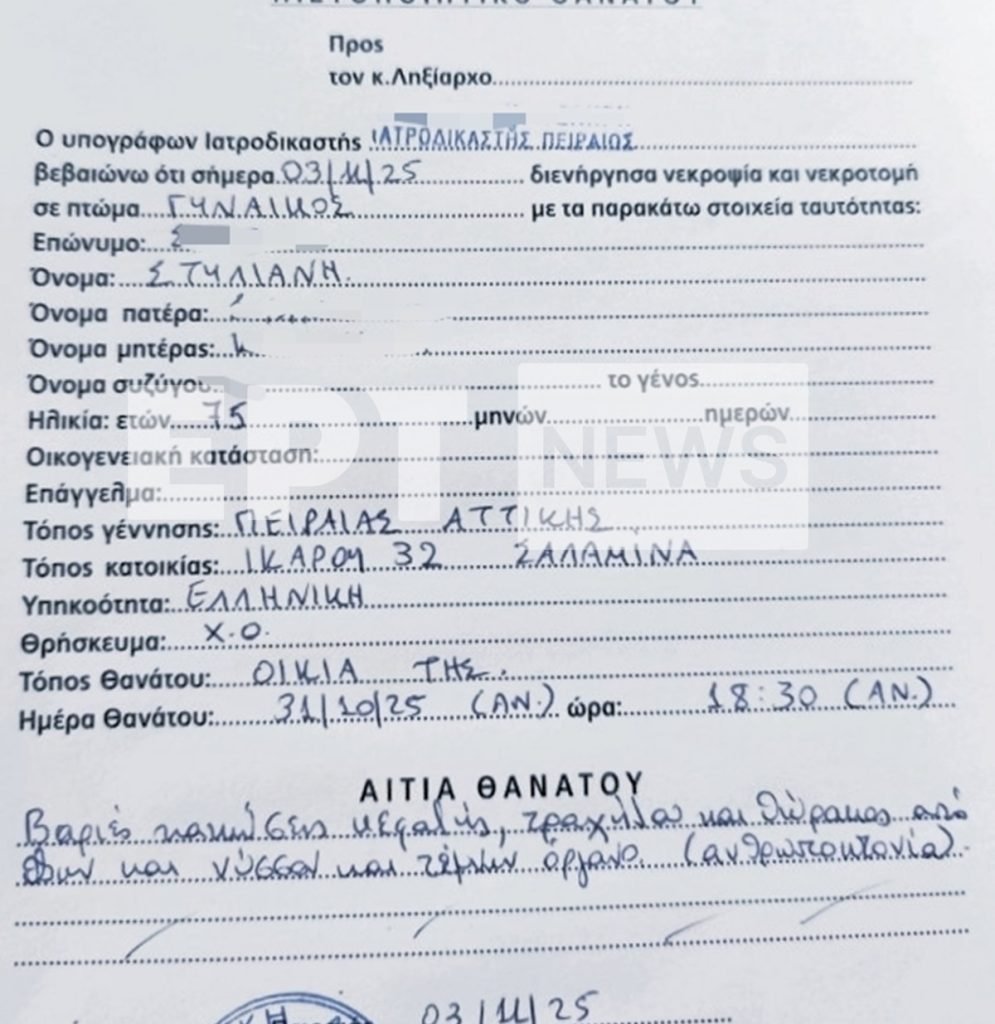 ΠΙΣΤΟΠΟΙΗΤΙΚΟ ΘΑΝΑΤΟΥ
Προς
τον κ.Ληξίαρχο
Ο υπογράφων Ιατροδικαστής ΙΑΤΡΟΔΙΚΑΣΤΗΣ ΠΕΙΡΑΙΩΣ
βεβαιώνω ότι σήμερα 03/11/25 διενήργησα νεκροψία και νεκροτομή
σε πτώμα ΓΥΝΑΙΚΟΣ με τα παρακάτω στοιχεία ταυτότητας:
Επώνυμο: Σ
Όνομα: ΣΤΥΛΙΑΝΗ
Όνομα πατέρα:
Όνομα μητέρας:
Όνομα συζύγου το γένος
Ηλικία: ετών 75 μηνών ημερών
Οικογενειακή κατάσταση:
Επάγγελμα:
ΕΡΤ NEWS
Τόπος γέννησης: ΠΕΙΡΑΙΑΣ ΑΤΤΙΚΗΣ
Τόπος κατοικίας: ΙΚΑΡΟΥ 32 ΣΑΛΑΜΙΝΑ
Υπηκοότητα: ΕΛΛΗΝΙΚΗ
Θρήσκευμα: Χ.Ο.
Τόπος Θανάτου: ΟΙΚΙΑ ΤΗΣ.
Ημέρα Θανάτου: 31/10/25 (ΑΝ.) ώρα: 18:30 (ΑΝ.)
ΑΙΤΙΑ ΘΑΝΑΤΟΥ
Βαριές κακώσεις κεφαλής, τραχήλου και θώρακος από
θλων και νύσσον και τέμνον όργανο (ανθρωποκτονία).
03/11/25